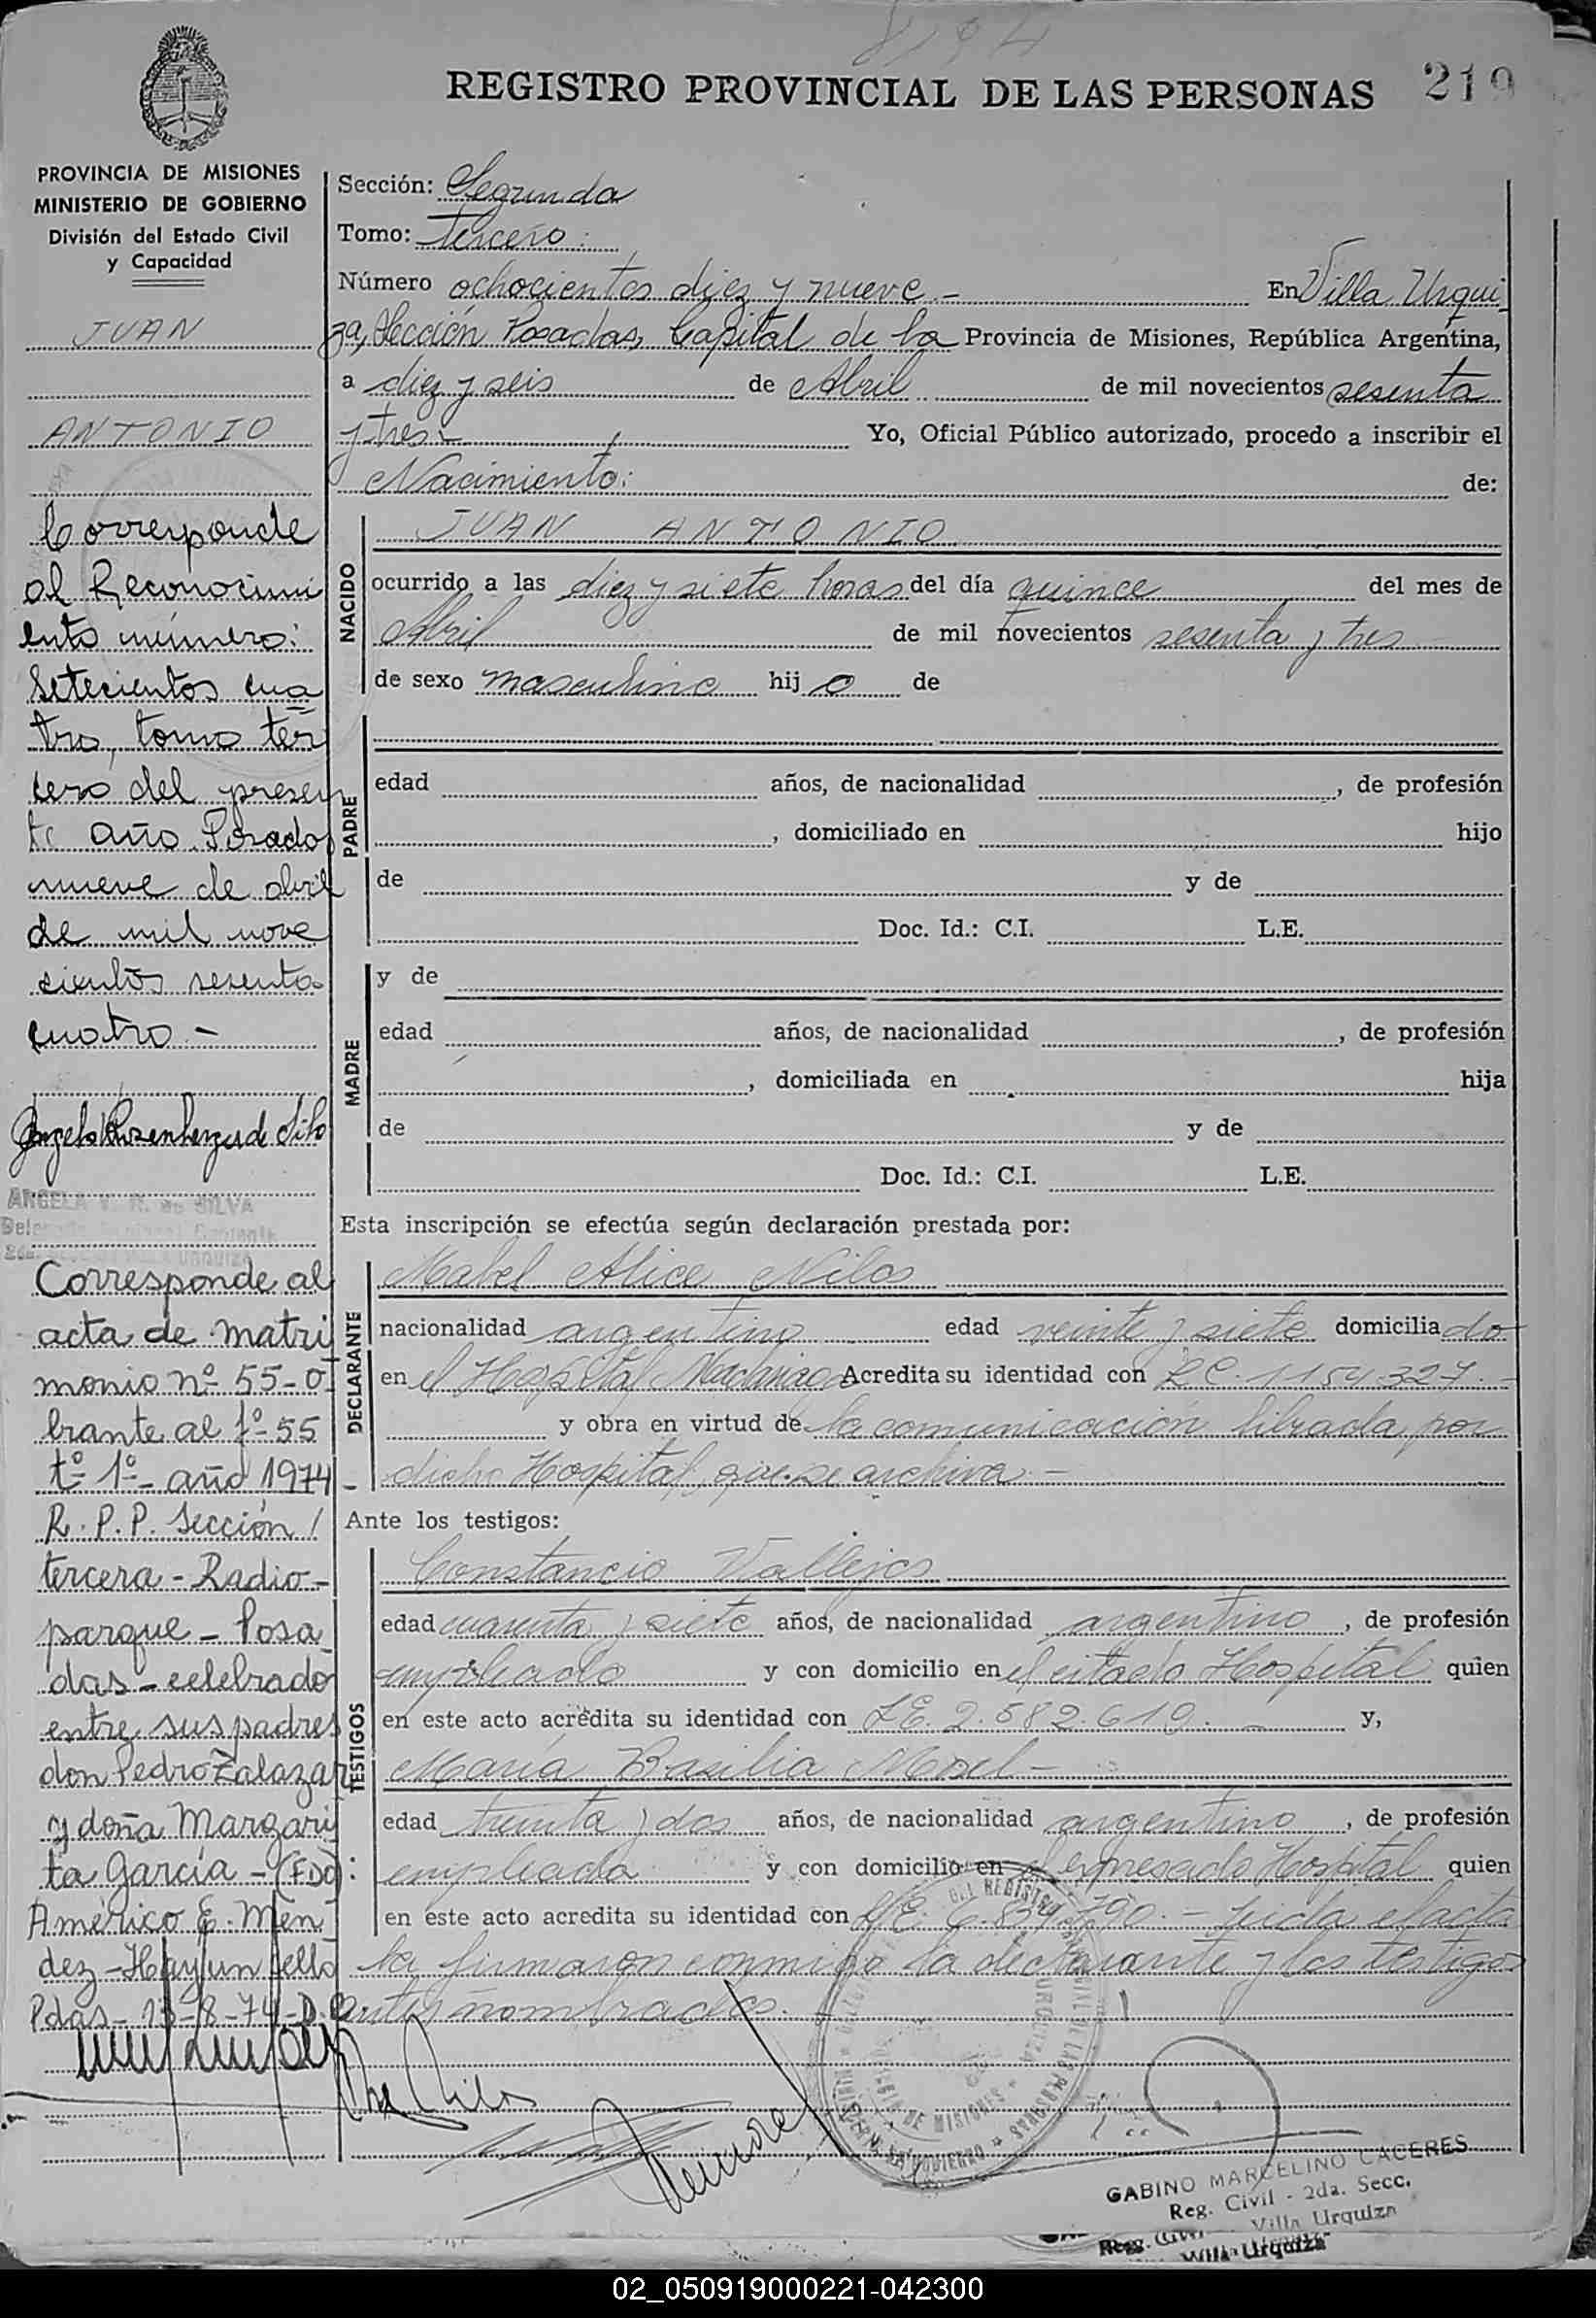 REGISTRO PROVINCIAL DE LAS PERSONAS 219
PROVINCIA DE MISIONES
MINISTERIO DE GOBIERNO
División del Estado Civil
y Capacidad
JUAN
ANTONIO
Corresponde
al Reconocimi
ento número:
Setecientos cua
tro, tomo ter
cero del presen
te año. Posadas
nueve de abril
de mil nove
cientos sesenta
cuatro.-
ANGELA V. R. de SILVA
Corresponde al
acta de matri
monio nº 55-o
brante al fº-55
tº-1º-año 1974-
R.P.P. Sección
tercera-Radio-
parque-Posa
das-celebrado
entre sus padres
don Pedro Zalazar
y doña Margari
ta García-(FDO):
Américo E. Men
dez-Hay un sello
Pdas-13-8-74-D.
Sección: Segunda
Tomo: Tercero.
Número ochocientos diez y nueve.- En Villa Urqui
za, Sección Posadas, Capital de la Provincia de Misiones, República Argentina,
a diez y seis de Abril de mil novecientos sesenta
y tres- Yo, Oficial Público autorizado, procedo a inscribir el
Nacimiento: de:
NACIDO
JUAN ANTONIO
ocurrido a las diez y siete horas del día quince del mes de
Abril de mil novecientos sesenta y tres
de sexo masculino hijo de
PADRE
edad años, de nacionalidad , de profesión
, domiciliado en hijo
de y de
Doc. Id.: C.I. L.E.
MADRE
y de
edad años, de nacionalidad , de profesión
, domiciliada en hija
de y de
Doc. Id.: C.I. L.E.
Esta inscripción se efectúa según declaración prestada por:
DECLARANTE
Mabel Alice Nilos
nacionalidad argentina edad veinte y siete domiciliado
en el Hospital Madariaga Acredita su identidad con L.C. 1154327.-
y obra en virtud de la comunicación librada por
dicho Hospital que se archiva.-
Ante los testigos:
TESTIGOS
Constancio Vallejos
edad cuarenta y siete años, de nacionalidad argentino, de profesión
empleado y con domicilio en el citado Hospital quien
en este acto acredita su identidad con L.E. 2.582.619.- y,
María Basilia Mosel-
edad treinta y dos años, de nacionalidad argentino, de profesión
empleada y con domicilio en el expresado Hospital quien
en este acto acredita su identidad con L.C. 6.834.790.- Leida el acta
la firmaron conmigo la declarante y los testigos
antes nombrados.
GABINO MARCELINO CACERES
Reg. Civil - 2da. Secc.
Villa Urquiza
Villa Urquiza
02_050919000221-042300